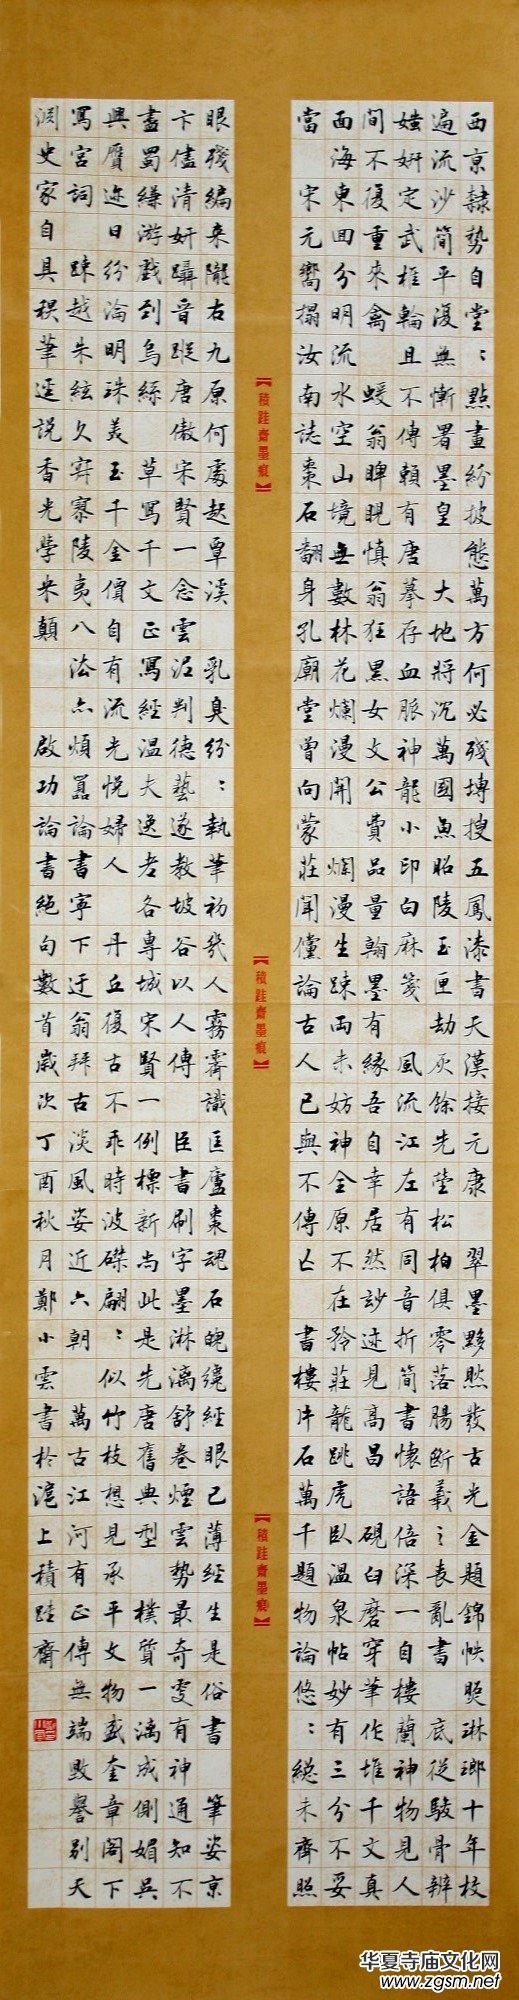 西京隸勢自堂：點畫紛披態萬方何必殘塼搜五鳳漆書天漢接元康 翠墨黟然發古光金題錦帙煚琳瑯十年校
遍流沙簡平復無慚署墨皇 大地將沉萬國魚昭陵玉匣劫灰餘先塋松柏俱零落腸斷羲之喪亂書 底從駿骨辨
媸妍定武椎輪且不傳賴有唐摹存血脈神龍小印白麻箋 風流江左有同音折簡書懷語倍深一自樓蘭神物見人
間不復重來禽 蝯翁睥睨慎翁狂黑女文公費品量翰墨有緣吾自幸居然妙迹見高昌 硯臼磨穿筆作堆千文真
面海東回分明流水空山境無數林花爛漫開 爛漫生疎兩未妨神全原不在矜莊龍跳虎臥溫泉帖妙有三分不妥
當 宋元嚮搨汝南誌棗石翻身孔廟堂曾向蒙莊聞儻論古人已與不傳亡 書樓片石萬千題物論悠：總未齊照
【積跬齋墨痕】
【積跬齋墨痕】
【積跬齋墨痕】
眼殘編來隴右九原何處起覃溪 乳臭紛：執筆初幾人霧霽識匡廬棗魂石魄纔經眼已薄經生是俗書 筆姿京
卞儘清妍躡晉蹤唐傲宋賢一念雲泥判德藝遂教坡谷以人傳 臣書刷字墨淋漓舒卷煙雲勢最奇更有神通知不
盡蜀縑游戲到烏絲 草寫千文正寫經溫夫逸老各專城宋賢一例標新尚此是先唐舊典型 樸質一漓成側媚吳
興贗迹日紛淪明珠美玉千金價自有流光悅婦人 丹丘復古不乖時波磔翩：似竹枝想見承平文物盛奎章閣下
寫宮詞 疎越朱絃久寂寥陵夷八法亦煩囂論書寧下迂翁拜古淡風姿近六朝 萬古江河有正傳無端毀譽別天
淵史家自具筆逕說香光學米顛 啟功論書絕句數首歲次丁酉秋月鄭小雲書於滬上積跬齋
华夏寺庙文化网
www.zgsm.net